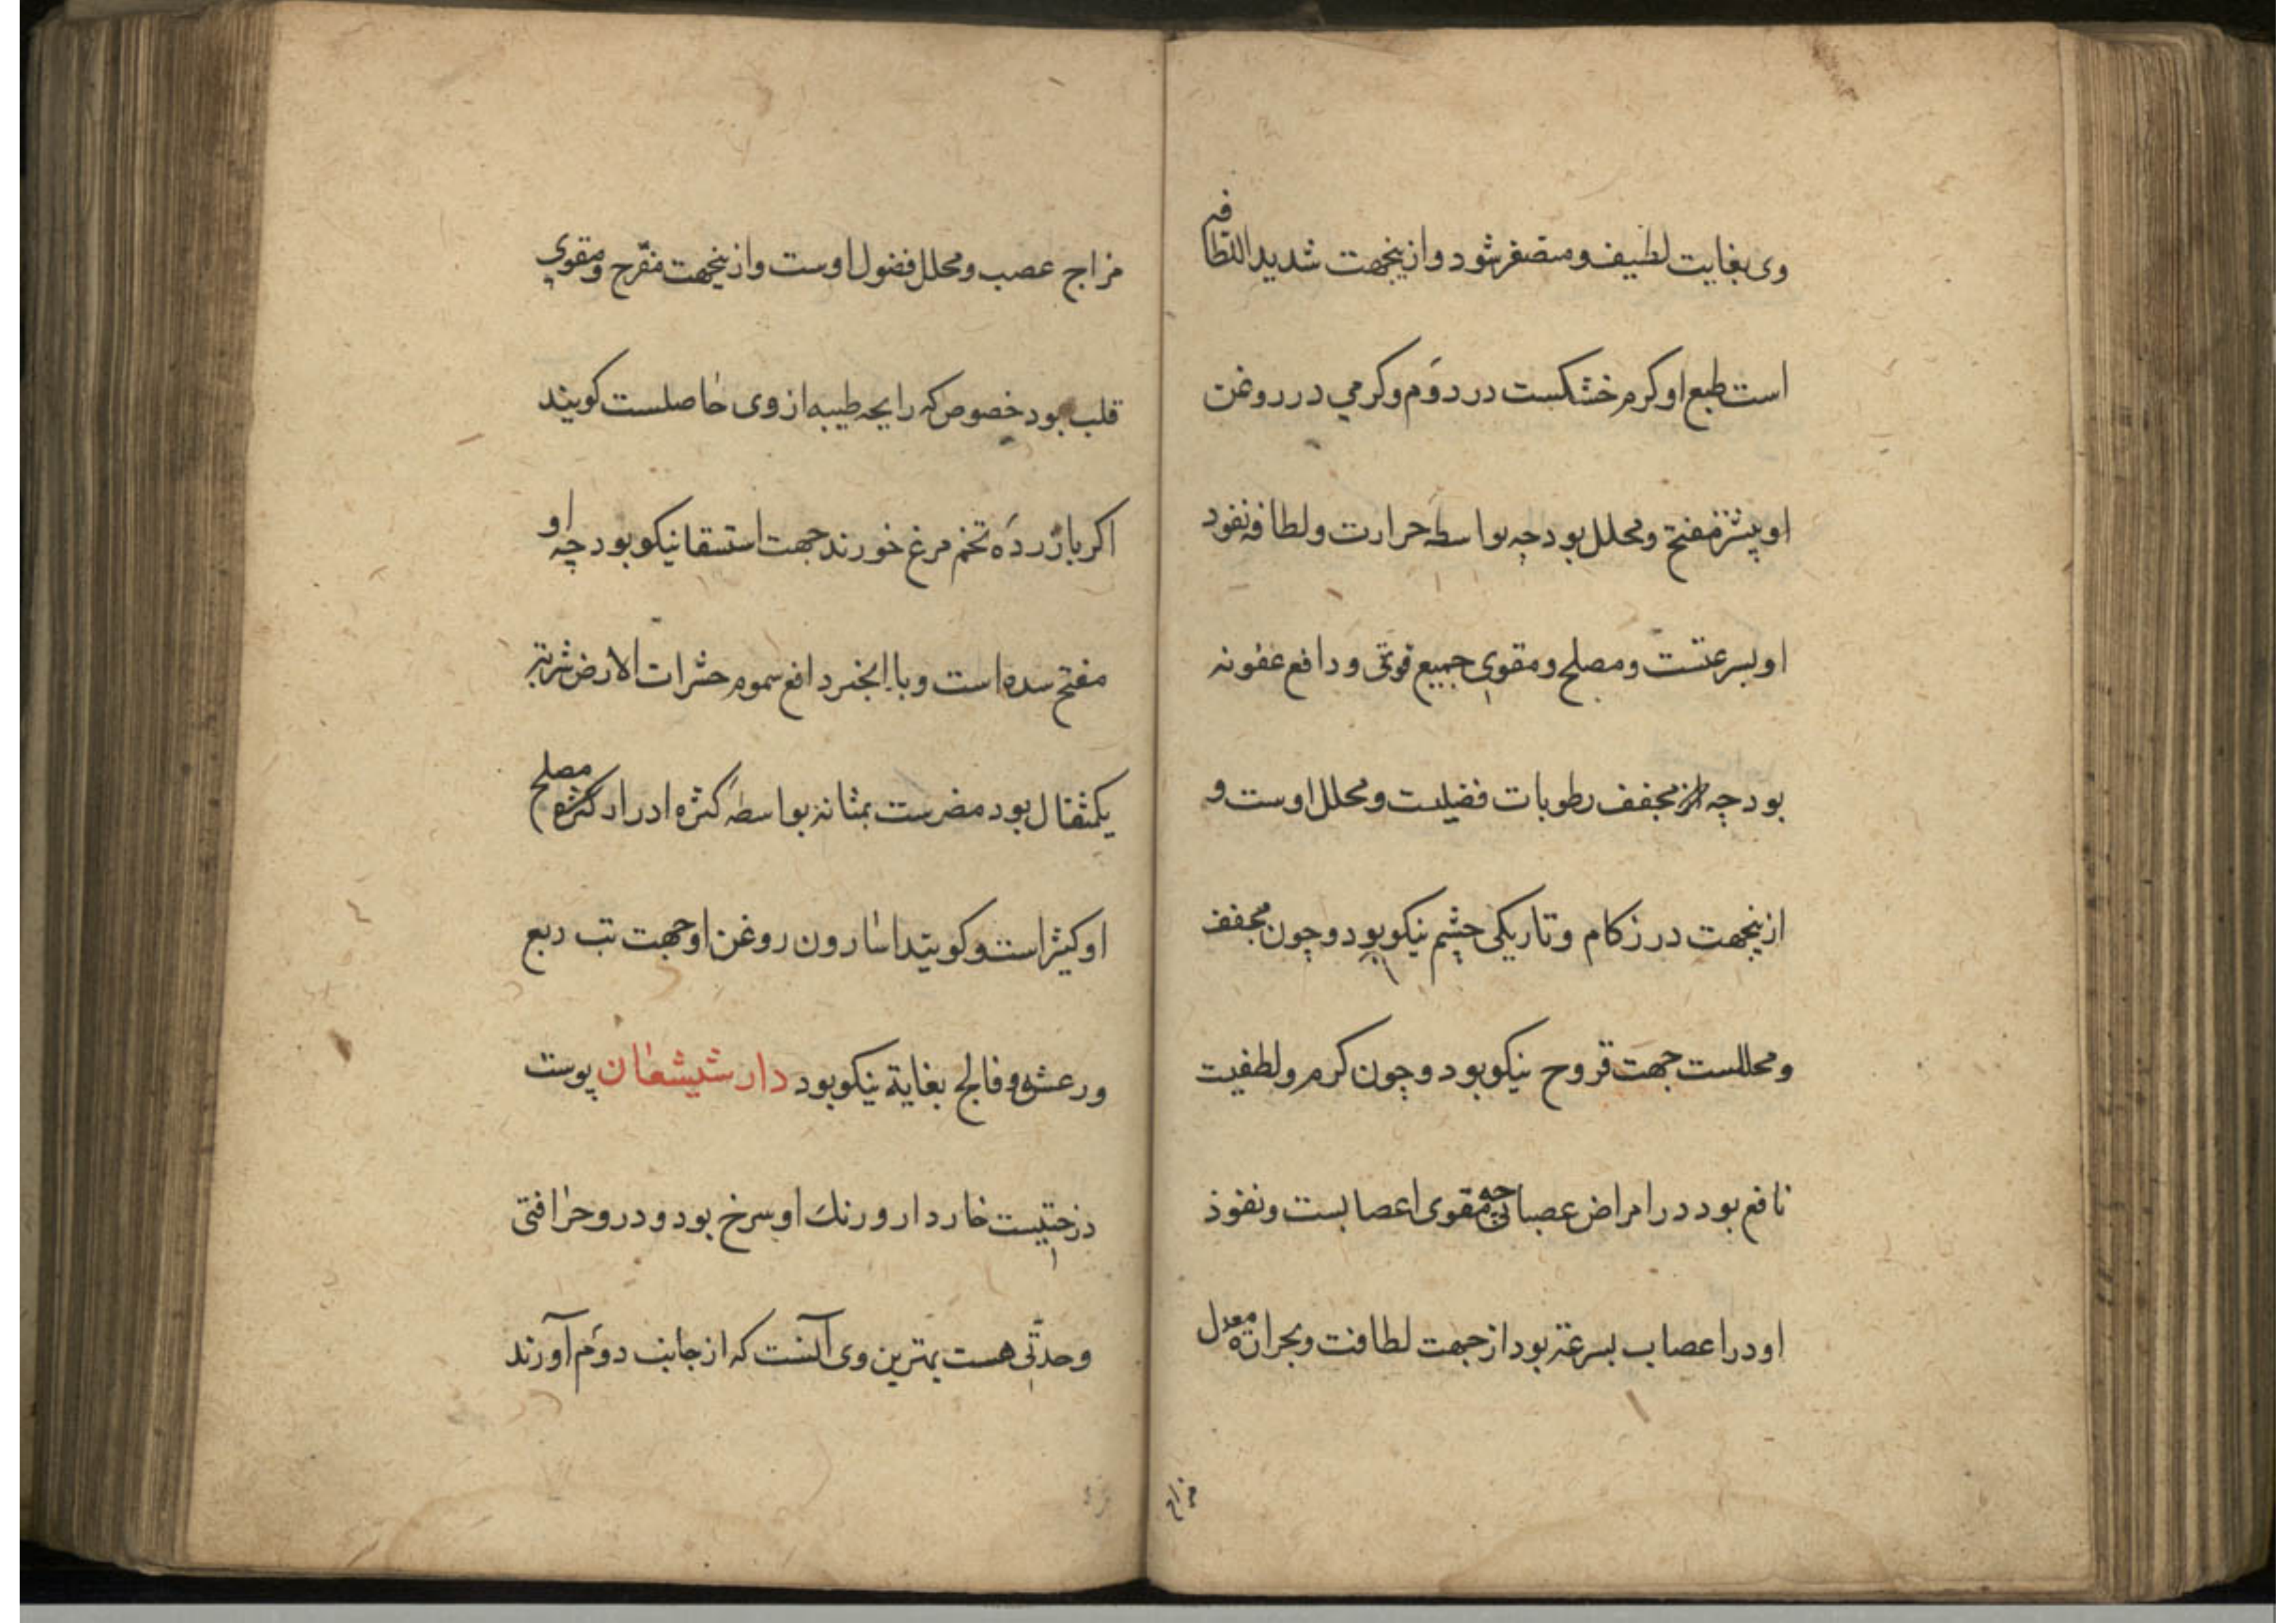 وی بغایت لطیف و متصغر شود و ازینجهت شدید اللطافه
است طبع او کرم خشکست در دوّم و کرمي در روغن
او بیشتر مفتح و محلل بود چه بواسطه حرارت و لطافه نفود
او بسرعتست و مصلح و مقوی جمیع قوتی و دافع عفونه
بود چه مجفف رطوبات فضلیست و محلل اوست و
ازینجهت در زکام و تاریکی چشم نیکو بود و چون مجفف
و محللست جهت قروح نیکو بود و چون کرم و لطفیت
نافع بود در امراض عصبانی چه مقوی اعصابست و نفوذ
او در اعصاب بسرعة بود از جهت لطافت و بحرارة معدل
مزاج
مزاج عصب و محلل فضول اوست و ازینجهت مفرّح و مقوی
قلب بود خصوص که رایحه طیبه از وی حاصلست کویند
اکر با زرده تخم مرغ خورند جهت استسقا نیکو بود چه او
مفتح سده است و با انجیر دافع سموم حشرات الارض شربتی
یکمثقال بود مضرست بمثانه بواسطه کثره ادرار کثره مصلح
او کثیرا است و کویند اسارون روغن او جهت تب ربع
و رعشه و فالج بغایة نیکو بود دار شیشعان پوست
درختیست خاردار و رنك او سرخ بود و در و حرافتی
و حدّتی هست بهترین وی آنست که از جانب دوّم آورند